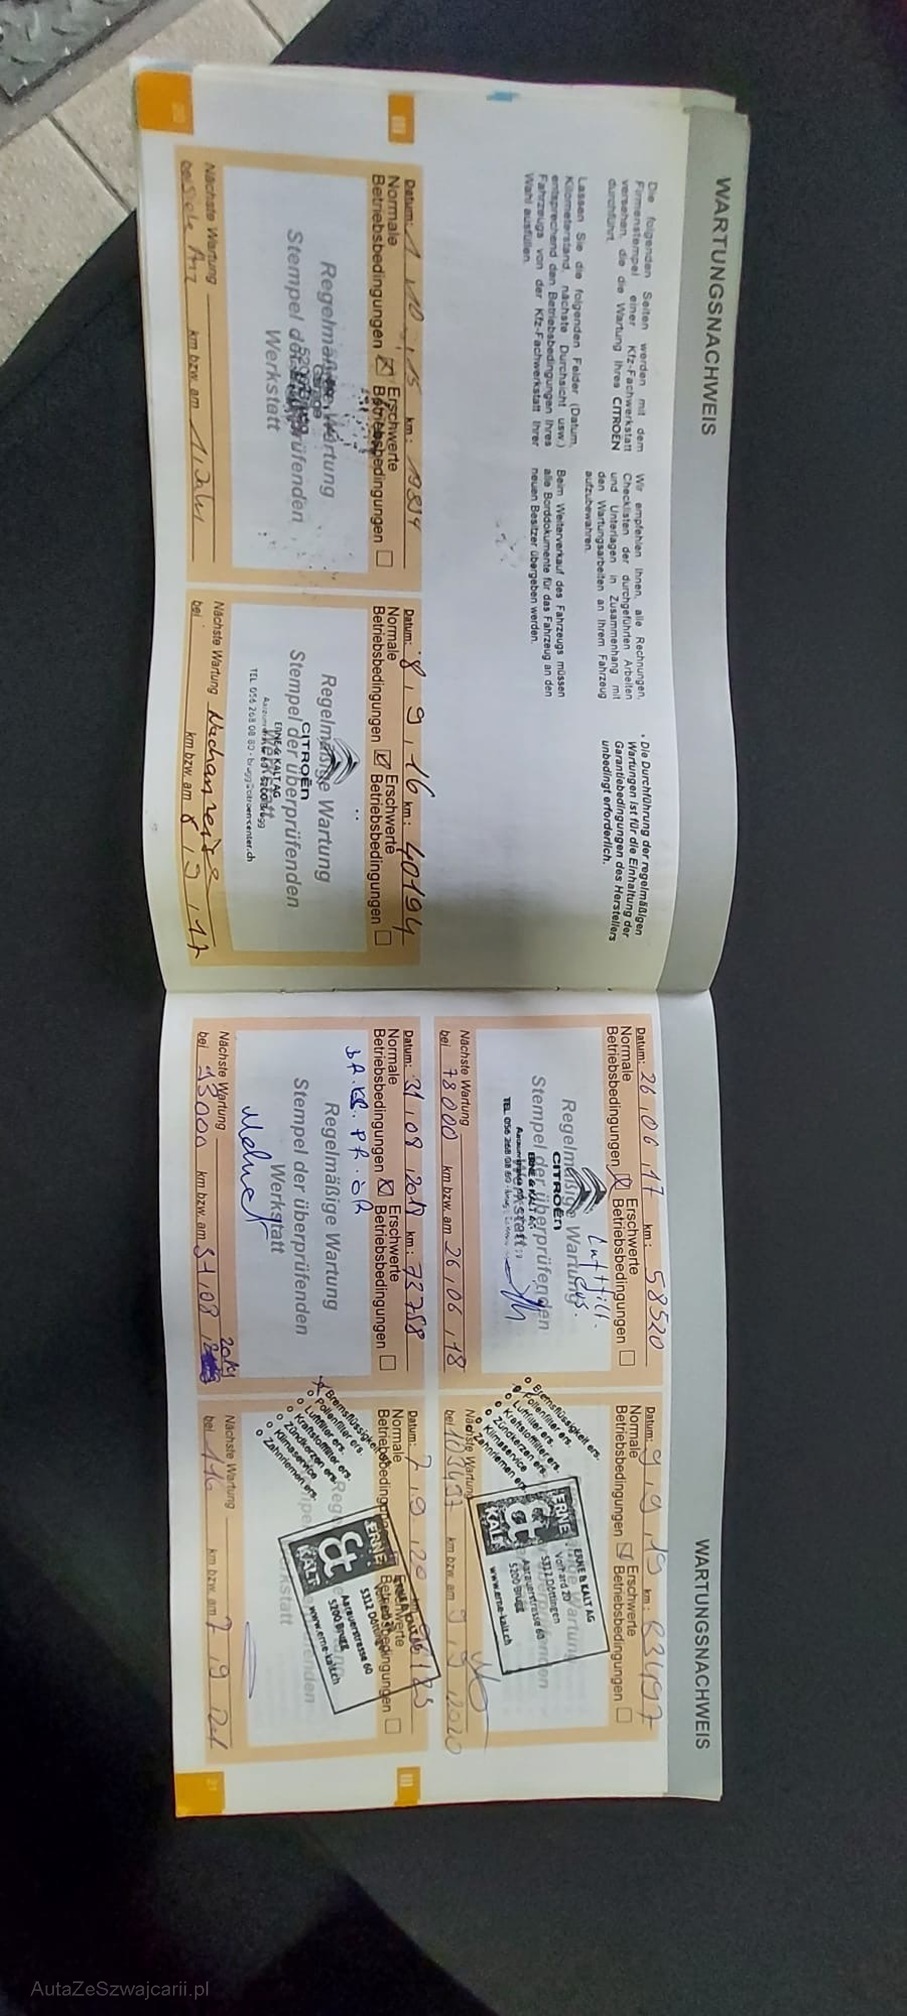 WARTUNGSNACHWEIS
Die folgenden Seiten werden mit dem
Firmenstempel einer Kfz-Fachwerkstatt
versehen, die die Wartung Ihres CITROEN
durchführt.
Lassen Sie die folgenden Felder (Datum,
Kilometerstand, nächste Durchsicht usw.)
entsprechend den Betriebsbedingungen Ihres
Fahrzeugs von der Kfz-Fachwerkstatt Ihrer
Wahl ausfüllen.
Wir empfehlen Ihnen, alle Rechnungen,
Checklisten der durchgeführten Arbeiten
und Unterlagen in Zusammenhang mit
den Wartungsarbeiten an Ihrem Fahrzeug
aufzubewahren.
Beim Weiterverkauf des Fahrzeugs müssen
alle Borddokumente für das Fahrzeug an den
neuen Besitzer übergeben werden.
• Die Durchführung der regelmäßigen
Wartungen ist für die Einhaltung der
Garantiebedingungen des Herstellers
unbedingt erforderlich.
III
Datum: 1 . 10 . 15 km: 19834
Normale Erschwerte
Betriebsbedingungen Betriebsbedingungen
Regelmäßige Wartung
Stempel der überprüfenden
Werkstatt
Nächste Wartung
bei km bzw. am 1 Jahr
20
Datum: 8 . 9 . 16 km: 40194
Normale Erschwerte
Betriebsbedingungen Betriebsbedingungen
Regelmäßige Wartung
CITROËN
Stempel der überprüfenden
ERNE & KALT AG
Werkstatt
TEL. 056 268 08 80 - brugg@citroen-center.ch
Nächste Wartung
bei km bzw. am 8 . 9 . 17
WARTUNGSNACHWEIS
Datum: 26 . 06 . 17 km: 58520
Normale Erschwerte
Betriebsbedingungen Betriebsbedingungen
Regelmäßige Wartung
CITROËN
Stempel der überprüfenden
Werkstatt
Nächste Wartung
bei 78000 km bzw. am 26 . 06 . 18
Datum: 9 . 9 . 19 km: 83497
Normale Erschwerte
Betriebsbedingungen Betriebsbedingungen
Bremsflüssigkeit ers.
Pollenfilter ers.
Luftfilter ers.
Kraftstofffilter ers.
Zündkerzen ers.
Klimaservice
Zahnriemen ers.
ERNE & KALT
ERNE & KALT AG
Vorhard 20
5312 Döttingen
Aarauerstrasse 60
5200 Brugg
www.erne-kalt.ch
Nächste Wartung
bei 103497 km bzw. am 9 . 9 . 2020
Datum: 31 . 08 . 2018 km: 73758
Normale Erschwerte
Betriebsbedingungen Betriebsbedingungen
Regelmäßige Wartung
Stempel der überprüfenden
Werkstatt
Nächste Wartung
bei 93000 km bzw. am 31 . 08 . 2019
III
Datum: 7 . 9 . 20
Normale Erschwerte
Betriebsbedingungen Betriebsbedingungen
Bremsflüssigkeit ers.
Pollenfilter ers.
Luftfilter ers.
Kraftstofffilter ers.
Zündkerzen ers.
Klimaservice
Zahnriemen ers.
ERNE & KALT
5312 Döttingen
Aarauerstrasse 60
5200 Brugg
www.erne-kalt.ch
Nächste Wartung
bei 116 km bzw. am 7 . 9
21
AutaZeSzwajcarii.pl